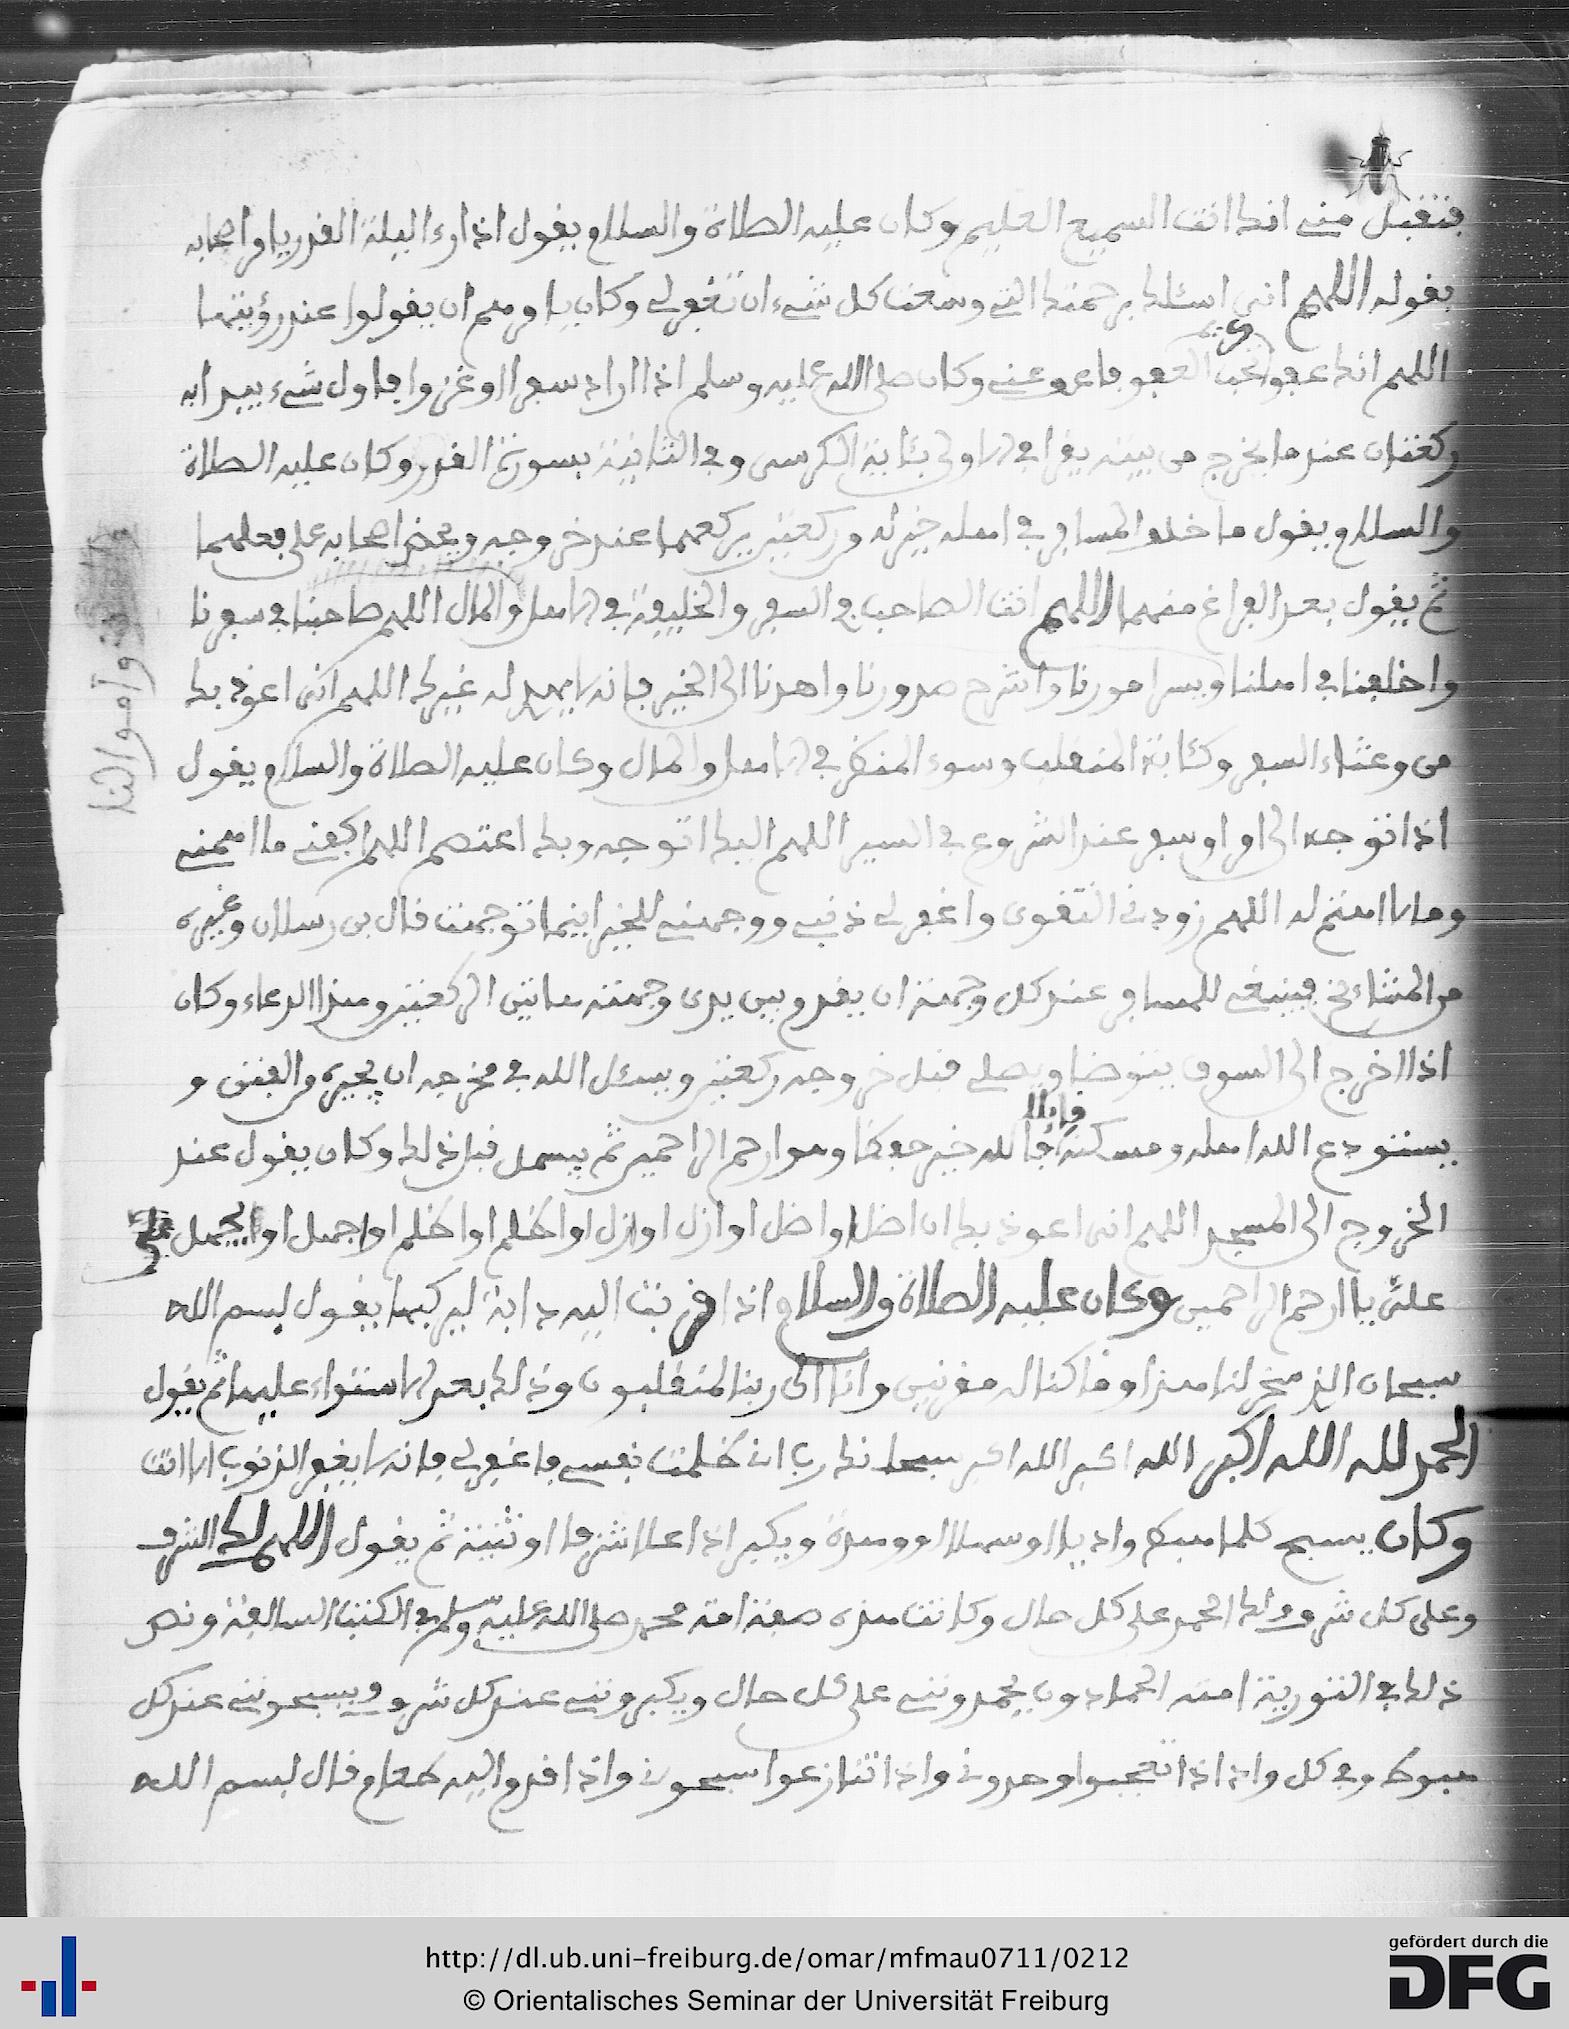 فتقبل مني انك انت السميع العليم وكان عليه الصلاة والسلام يقول اذا رءا ليلة القدر يامر اصحابه
بقوله اللهم انى اسئلك برحمتك التي وسعت كل شيء ان تغفر لي وكان يامرهم ان يقولوا عند رؤيتها
اللهم انك عفو تحب العفو فاعف عني وكان صلى الله عليه وسلم اذا اراد سفرا او غزوا فاول شيء يبدا به
ركعتان عند ما يخرج من بيته يقرا في الاولى بئاية الكرسي وفي الثانية بسورة القدر وكان عليه الصلاة
والسلام يقول ما خلف المسافر في اهله خير له من ركعتين يركعهما عند خروجه ويحض اصحابه على فعلهما
ثم يقول بعد الفراغ منهما اللهم انت الصاحب في السفر والخليفة في الاهل والمال اللهم صاحبنا في سفرنا
واخلفنا في اهلنا ويسر امورنا واشرح صدورنا واهدنا الى الخير فانه لا يهدي له غيرك اللهم انى اعوذ بك
من وعثاء السفر وكئابة المنقلب وسوء المنظر في الاهل والمال وكان عليه الصلاة والسلام يقول
اذا توجه الى امر او سفر عند الشروع في السير اللهم اليك اتوجه وبك اعتصم اللهم اكفني ما اهمني
وما لا اهتم له اللهم زودني التقوى واغفر لي ذنبي ووجهني للخير اينما توجهت قال بن رسلان وغيره
من المشائخ فينبغي للمسافر عند كل وجهة ان يقدم بين يدي وجهته هاتين الركعتين وهذا الدعاء وكان
اذا خرج الى السوق يتوضا ويصلي قبل خروجه ركعتين ويسئل الله في مخرجه ان يجيره من الفتن و
يستودع الله اهله ومسكنه قايلا فالله خير حفظا وهو ارحم الراحمين ثم يبسمل قبل ذلك وكان يقول عند
الخروج الى المسجد اللهم انى اعوذ بك ان اضل او اضل او ازل او ازل او اظلم او اظلم او اجهل او يجهل
علي يا ارحم الراحمين وكان عليه الصلاة والسلام اذا قربت اليه دابة ليركبها يقول بسم الله
سبحان الذي سخر لنا هذا وما كنا له مقرنين وانا الى ربنا لمنقلبون وذلك بعد الاستواء عليها ثم يقول
الحمد لله الله اكبر الله اكبر الله اكبر سبحانك رب اني ظلمت نفسي فاغفر لي فانه لا يغفر الذنوب الا انت
وكان يسبح كلما هبط واديا او سهلا او وهدة ويكبر اذا علا شرفا او ثنية ثم يقول اللهم لك الشرف
وعلى كل شرف ولك الحمد على كل حال وكانت هذه صفة امة محمد صلى الله عليه وسلم في الكتب السالفة ونص
ذلك في التورية امته الحمادون يحمدونني على كل حال ويكبرونني عند كل شرف ويسبحونني عند كل
هبوط وفي كل واد اذا تعجبوا وحدوني واذا تنازعوا سبحوني واذا قدم اليه طعام قال بسم الله
http://dl.ub.uni-freiburg.de/omar/mfmau0711/0212
© Orientalisches Seminar der Universität Freiburg
gefördert durch die
DFG